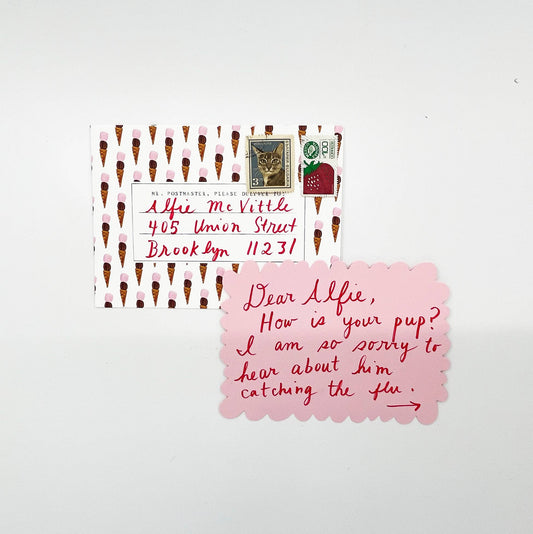 MR. POSTMASTER, PLEASE DELIVER TO:
Alfie McVittle
405 Union Street
Brooklyn 11231
3
Dear Alfie,
How is your pup?
I am so sorry to
hear about him
catching the flu.